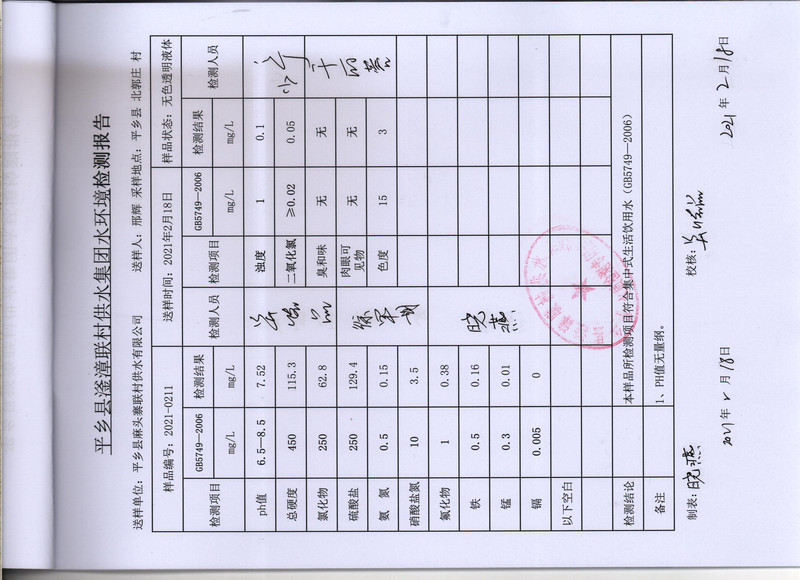 平乡县滏漳联村供水集团水环境检测报告
送样单位：平乡县麻头寨联村供水有限公司 送样人：邢辉 采样地点：平乡县 北郭庄 村
样品编号：2021-0211 送样时间：2021年2月18日 样品状态：无色透明液体
检测项目 GB5749—2006 检测结果 检测人员 检测项目 GB5749—2006 检测结果 检测人员
mg/L mg/L mg/L mg/L
ph值 6.5—8.5 7.52 浊度 1 0.1
总硬度 450 115.3 二氧化氯 ≥0.02 0.05
氯化物 250 62.8 臭和味 无 无
硫酸盐 250 129.4 肉眼可见物 无 无
氨 氮 0.5 0.15 色度 15 3
硝酸盐氮 10 3.5
氟化物 1 0.38
铁 0.5 0.16 晓燕
锰 0.3 0.01
镉 0.005 0
以下空白
检测结论 本样品所检测项目符合集中式生活饮用水（GB5749—2006）
备注 1、PH值无量纲。
制表：晓燕 2021年2月18日 校核： 2021年2月18日